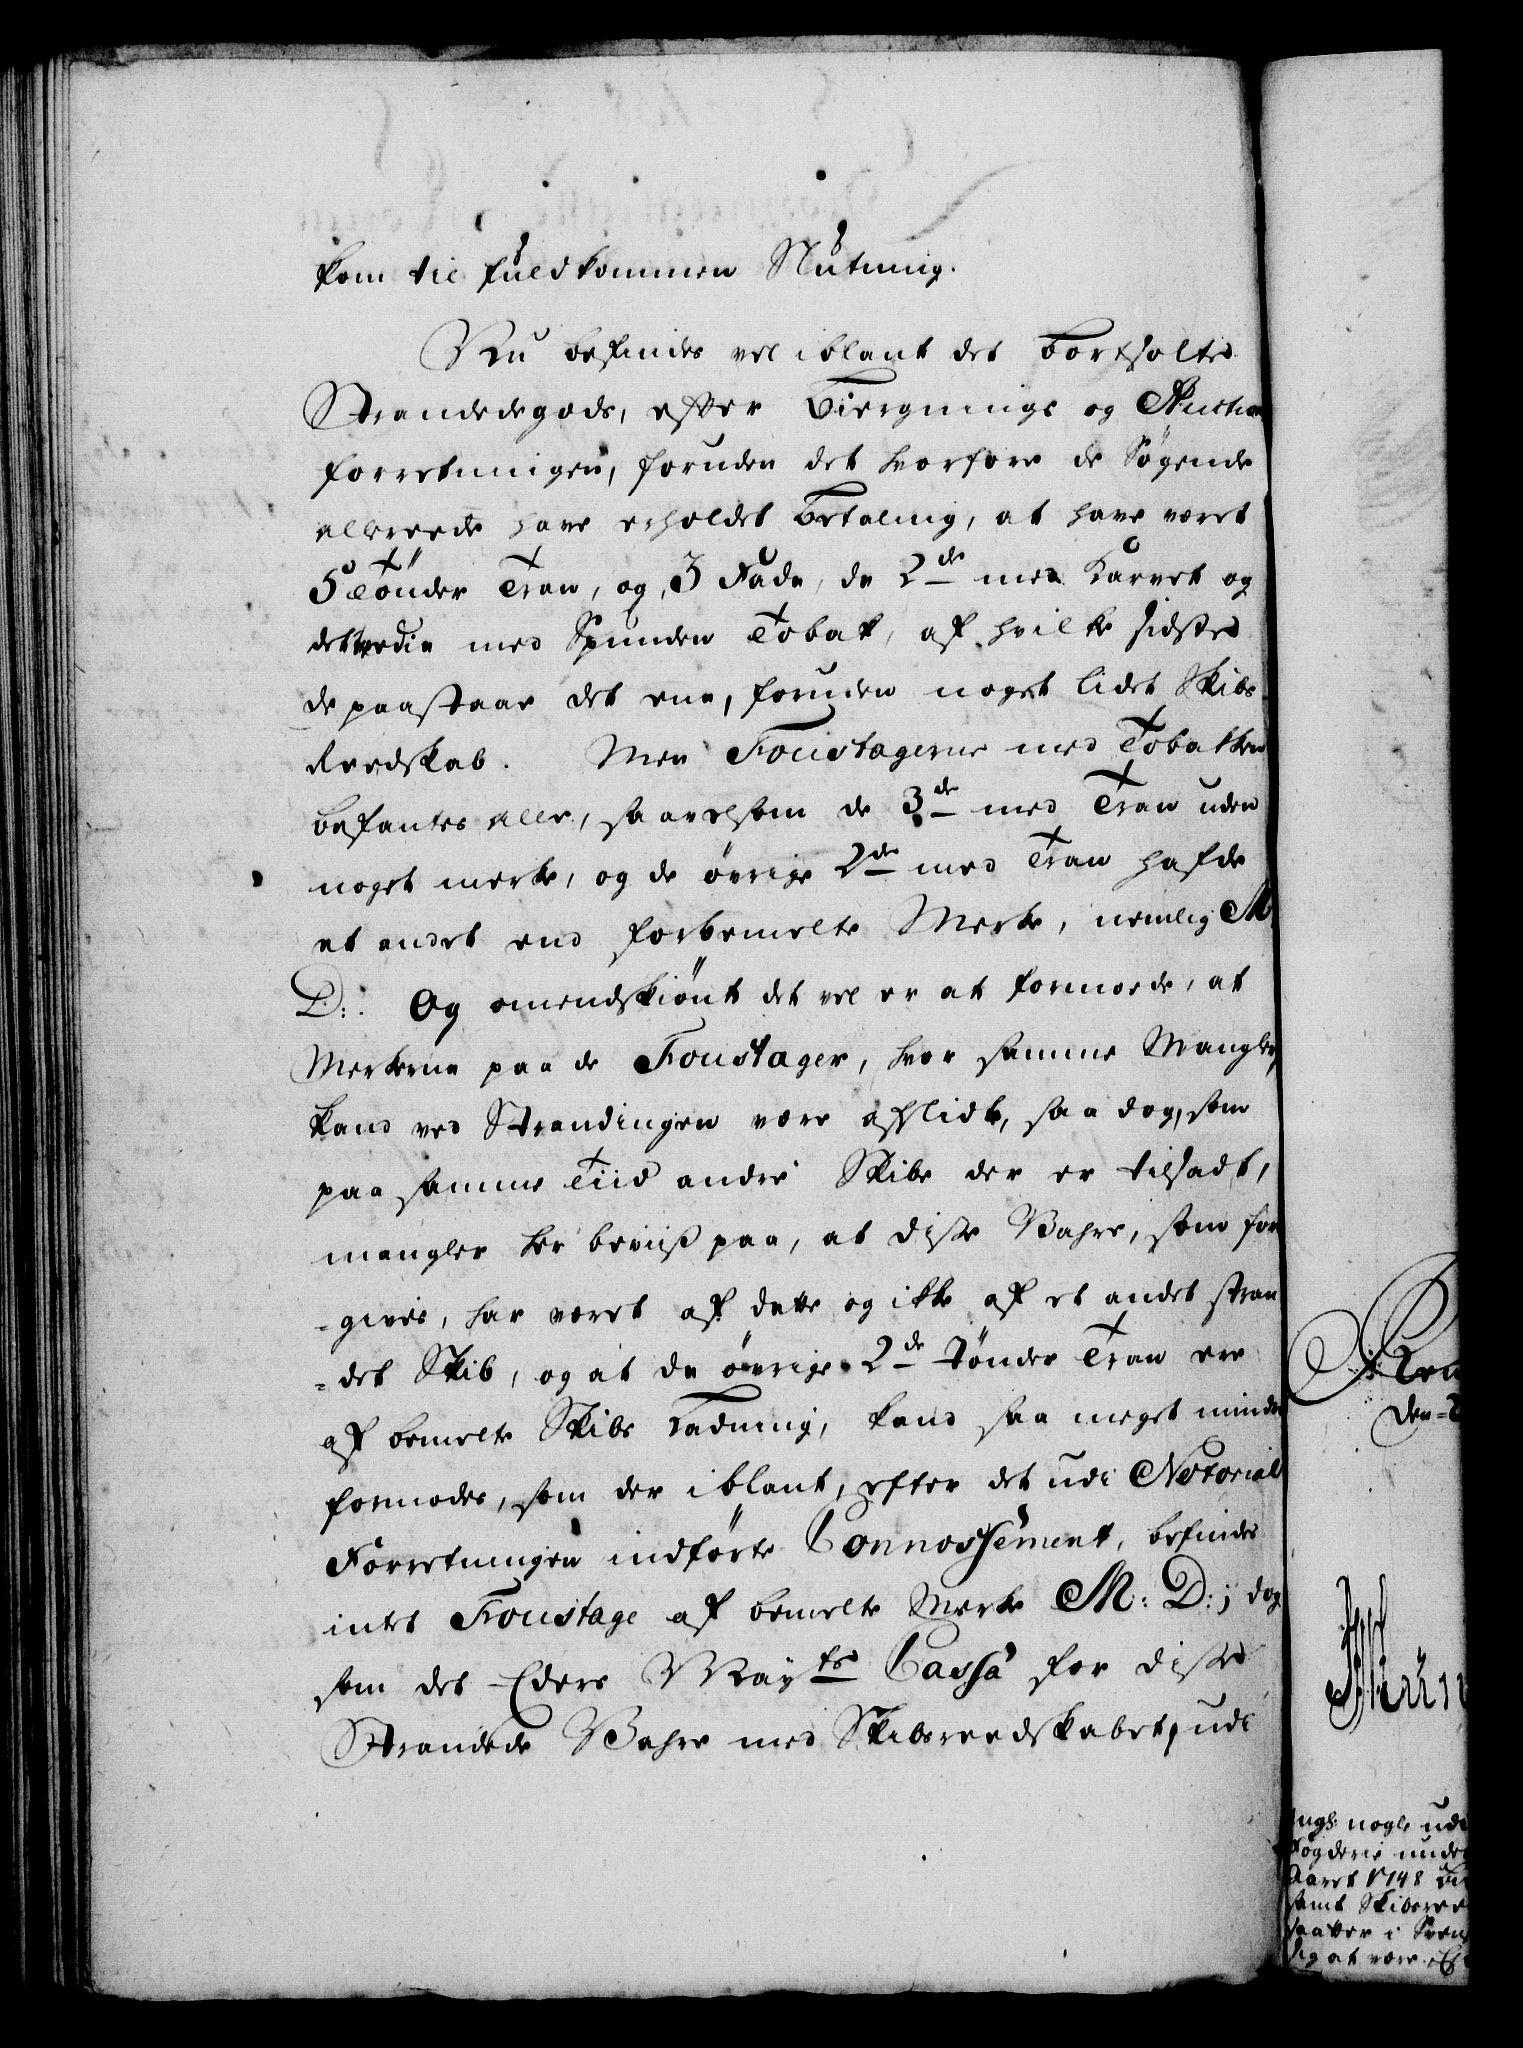 kom til fuldkommen Nutning.
Nu befindes vel iblant det bortsolte
Strandedegods, efter Biergnings og Auction
forretningen, foruden det hvorfore de Søgende
allereede have erholdet Betaling, at have været
5 Tønder Tran, og 3 Fade, de 2de med Karvet og
det tredie med Spunden Tobak, af hvilke sidste
de paastaar det ene, foruden noget lidet Skibs
Reedskab. Men Foustagerne med Tobakken
befantes alle, saavelsom de 3de med Tran uden
noget merke, og de øvrige 2de med Tran hafde
et andet end forbemelte Merke, nemlig M
D:. Og omendskiønt det vel er at formode, at
Merkerne paa de Foustager, hvor samme Mangler,
kand ved Strandingen være afslidt, saa dog, som
paa samme Tiid andre Skibe der er tilsadt,
mangler her beviis paa, at disse Vahre, som for
-gives, har været af dette og ikke af et andet stran
-det Skib, og at de øvrige 2de Tønder Tran ere
af bemelte Skibs Ladning, kand saa meget mindre
formodes, som der iblant, efter det udi Notorial
Forretningen indførte Connossement, befindes
intet Foustage af bemelte Merke M: D:; dog
som det Eders Mayts Cassa for disse
Strandede Vahre med Skibsreedskabet, udi
den
ngl: nogle udi
Fogderie under
Aaret 1748
samt Skibsree
saatter i
sig at være